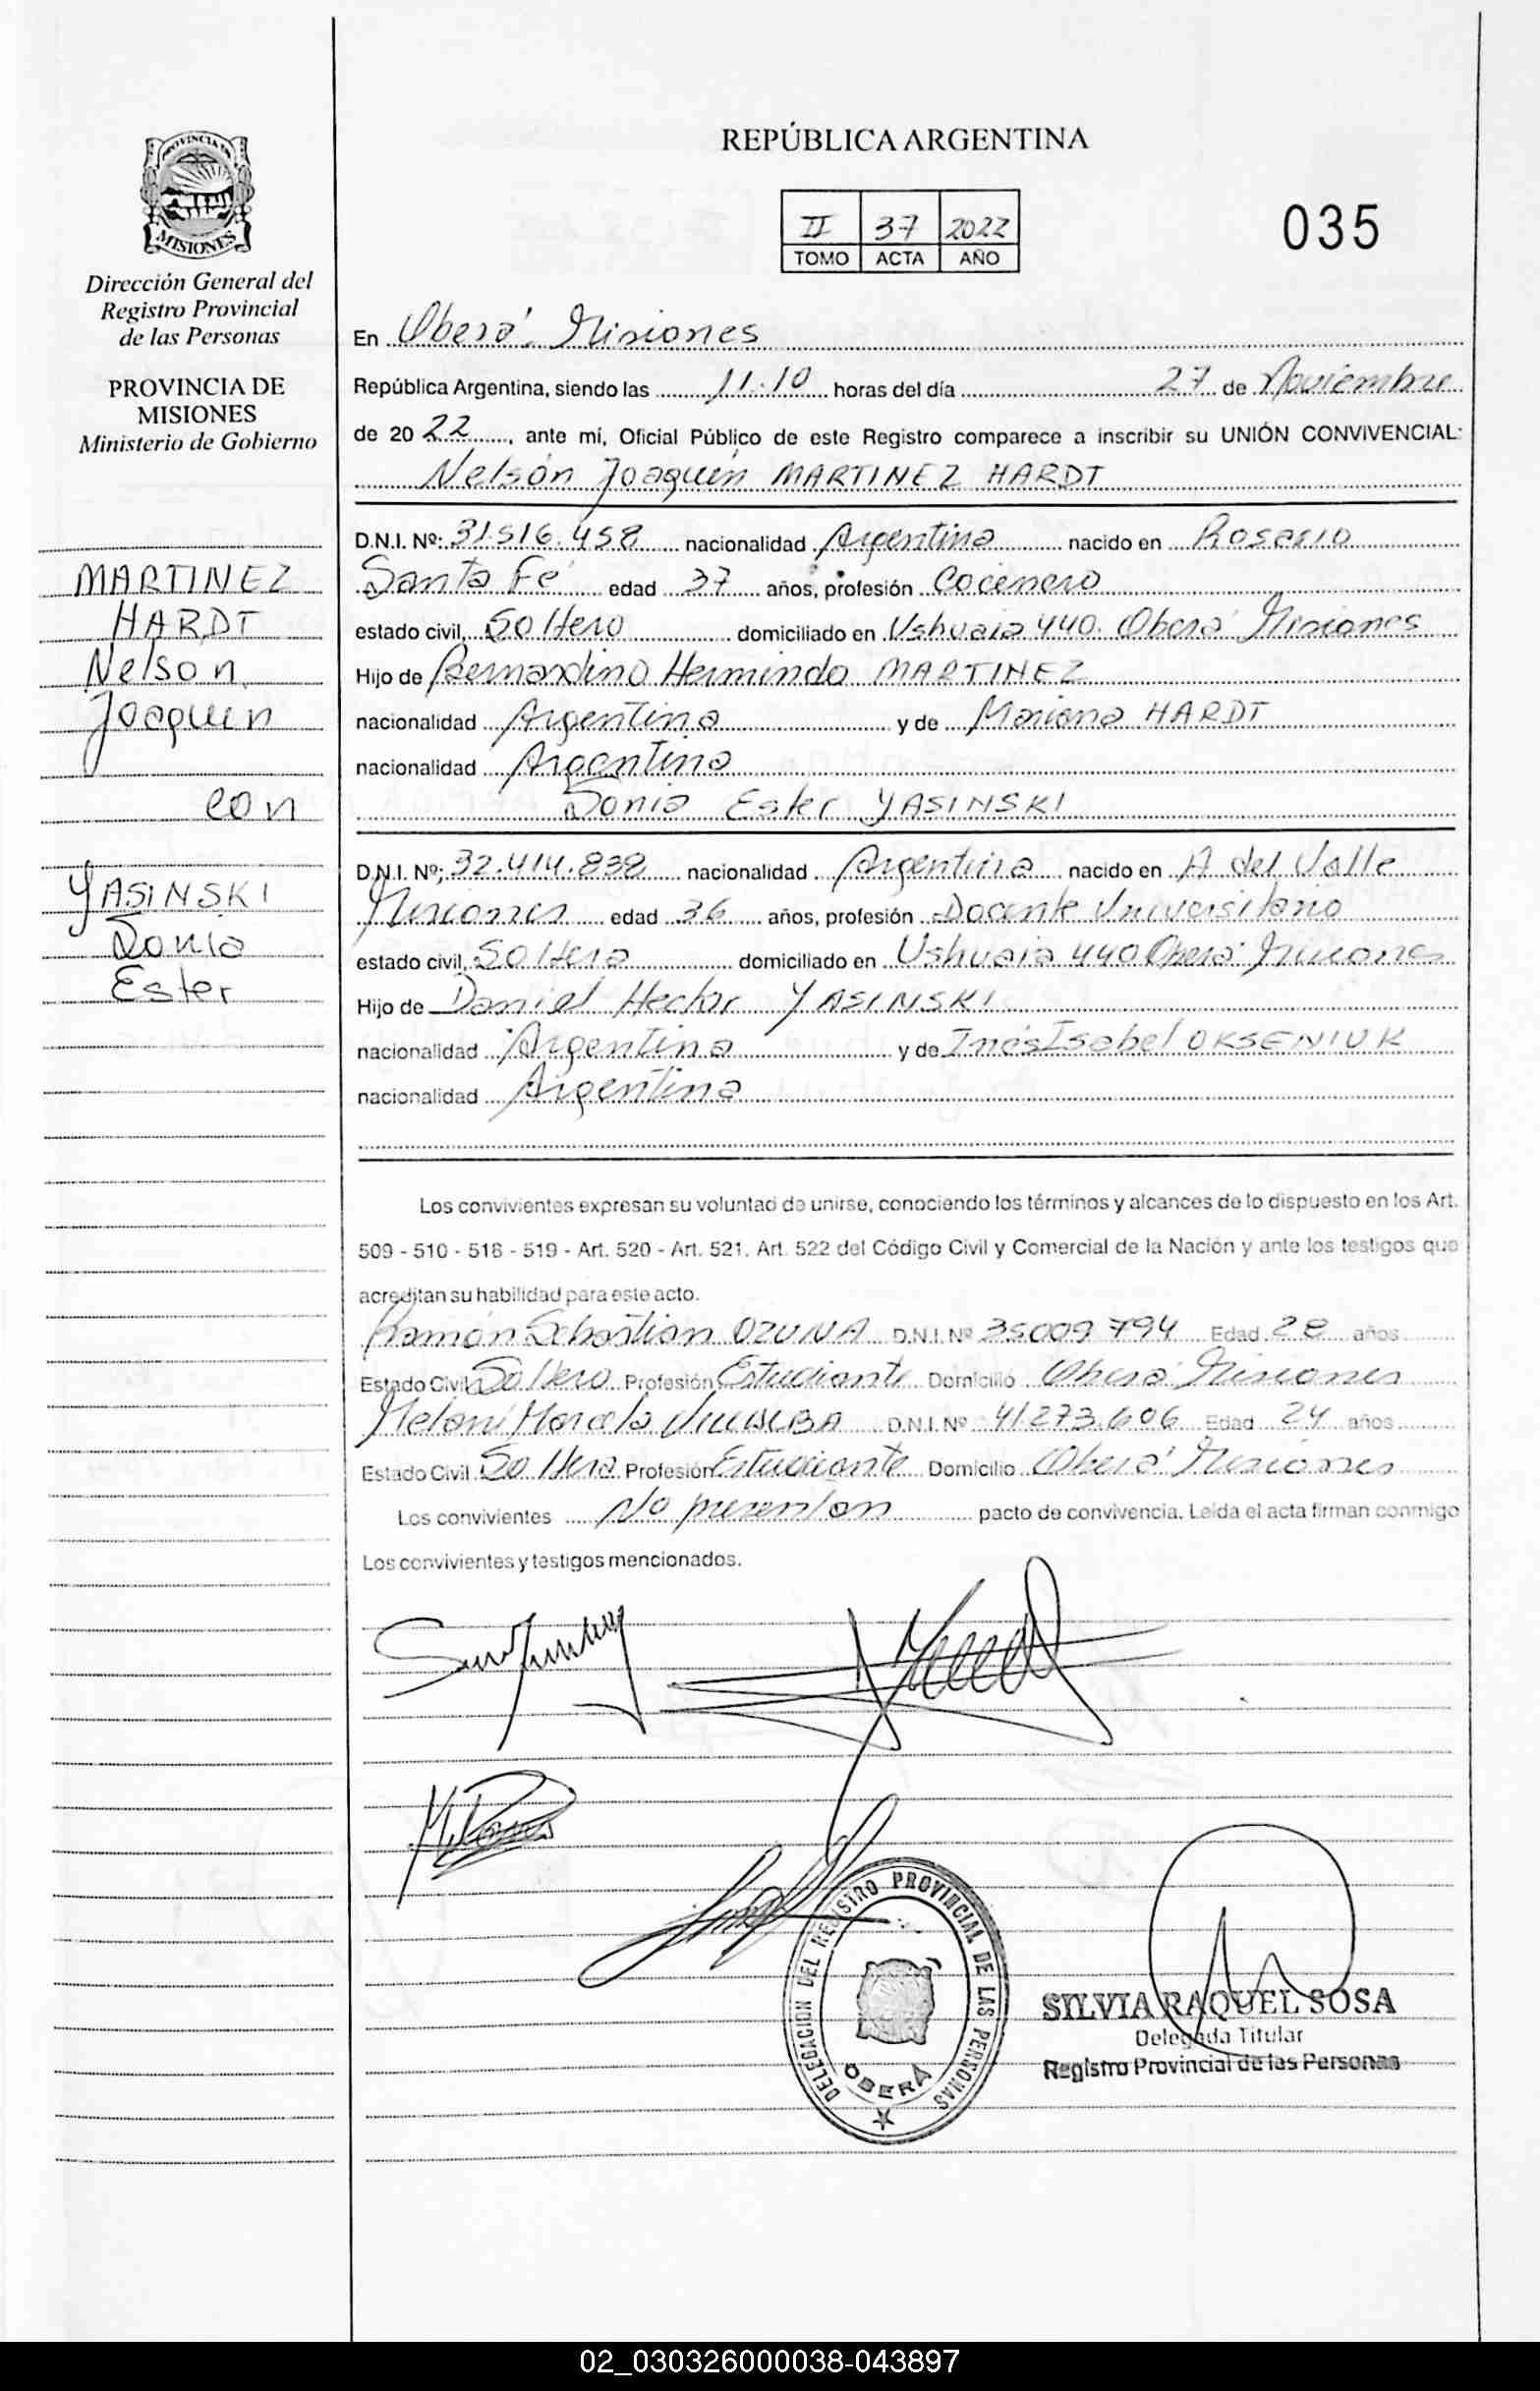 PROVINCIA DE
MISIONES
Dirección General del
Registro Provincial
de las Personas
PROVINCIA DE
MISIONES
Ministerio de Gobierno
MARTINEZ
HARDT
Nelson
Joaquin
con
YASINSKI
Sonia
Ester
REPÚBLICA ARGENTINA
II 37 2022
TOMO ACTA AÑO
035
En Oberá. Misiones
República Argentina, siendo las 11.10 horas del día 27 de Noviembre
de 2022, ante mí, Oficial Público de este Registro comparece a inscribir su UNIÓN CONVIVENCIAL:
Nelson Joaquin MARTINEZ HARDT
D.N.I. Nº: 31.516.458 nacionalidad Argentina nacido en Rosario
Santa Fe edad 37 años, profesión Cocinero
estado civil, Soltero domiciliado en Ushuaia 440. Oberá Misiones
Hijo de Bernardino Hermindo MARTINEZ
nacionalidad Argentina y de Mariana HARDT
nacionalidad Argentina
Sonia Ester YASINSKI
D.N.I. Nº; 32.414.838 nacionalidad Argentina nacido en A del Valle
Misiones edad 36 años, profesión Docente Universitario
estado civil, Soltera domiciliado en Ushuaia 440 Oberá Misiones
Hijo de Daniel Hector YASINSKI
nacionalidad Argentina y de Inés Isabel OKSENIUK
nacionalidad Argentina
Los convivientes expresan su voluntad de unirse, conociendo los términos y alcances de lo dispuesto en los Art.
509 - 510 - 518 - 519 - Art. 520 - Art. 521. Art. 522 del Código Civil y Comercial de la Nación y ante los testigos que
acreditan su habilidad para este acto.
Ramón Sebastian OZUNA D.N.I. Nº 35009794 Edad 28 años
Estado Civil Soltero Profesión Estudiante Domicilio Oberá Misiones
Melani Marcela D.N.I. Nº 41.273.606 Edad 24 años
Estado Civil Soltera Profesión Estudiante Domicilio Oberá Misiones
Los convivientes No presentan pacto de convivencia. Leída el acta firman conmigo
Los convivientes y testigos mencionados.
DELEGACION DEL REGISTRO PROVINCIAL DE LAS PERSONAS
OBERÁ
SILVIA RAQUEL SOSA
Delegada Titular
Registro Provincial de las Personas
02_030326000038-043897